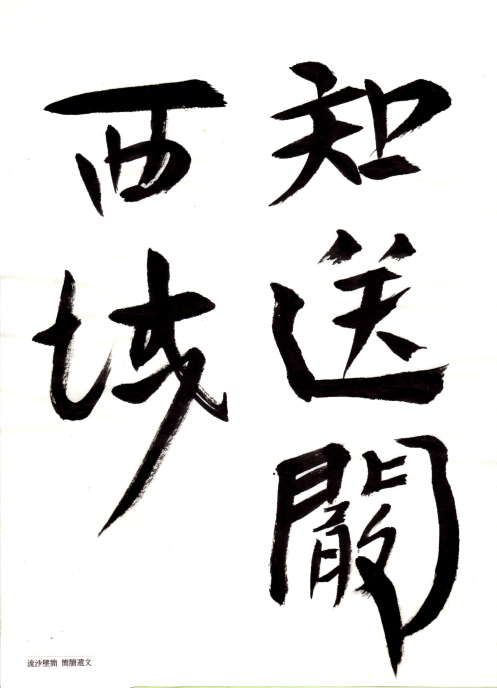 知送闞
西域
流沙墜簡 簡牘遺文